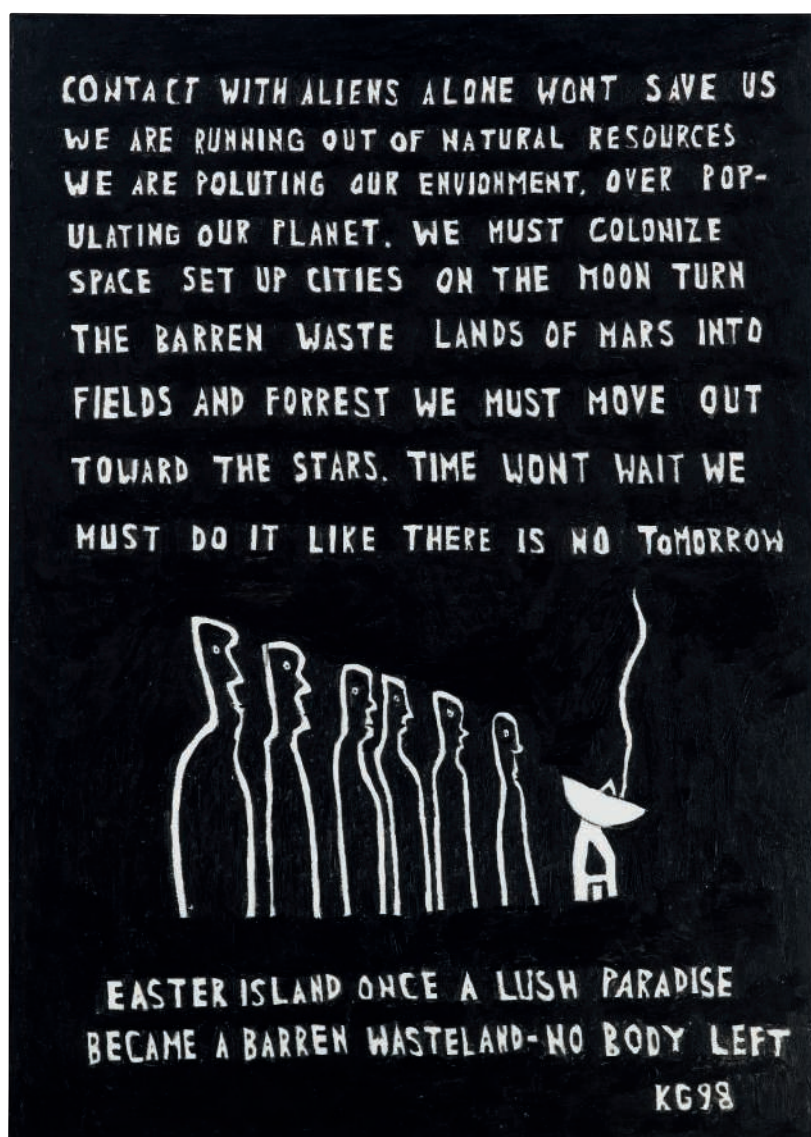 CONTACT WITH ALIENS ALONE WONT SAVE US
WE ARE RUNNING OUT OF NATURAL RESOURCES
WE ARE POLUTING OUR ENVIONMENT, OVER POP-
ULATING OUR PLANET. WE MUST COLONIZE
SPACE SET UP CITIES ON THE MOON TURN
THE BARREN WASTE LANDS OF MARS INTO
FIELDS AND FORREST WE MUST MOVE OUT
TOWARD THE STARS. TIME WONT WAIT WE
MUST DO IT LIKE THERE IS NO TOMORROW
EASTER ISLAND ONCE A LUSH PARADISE
BECAME A BARREN WASTELAND-NO BODY LEFT
KG98